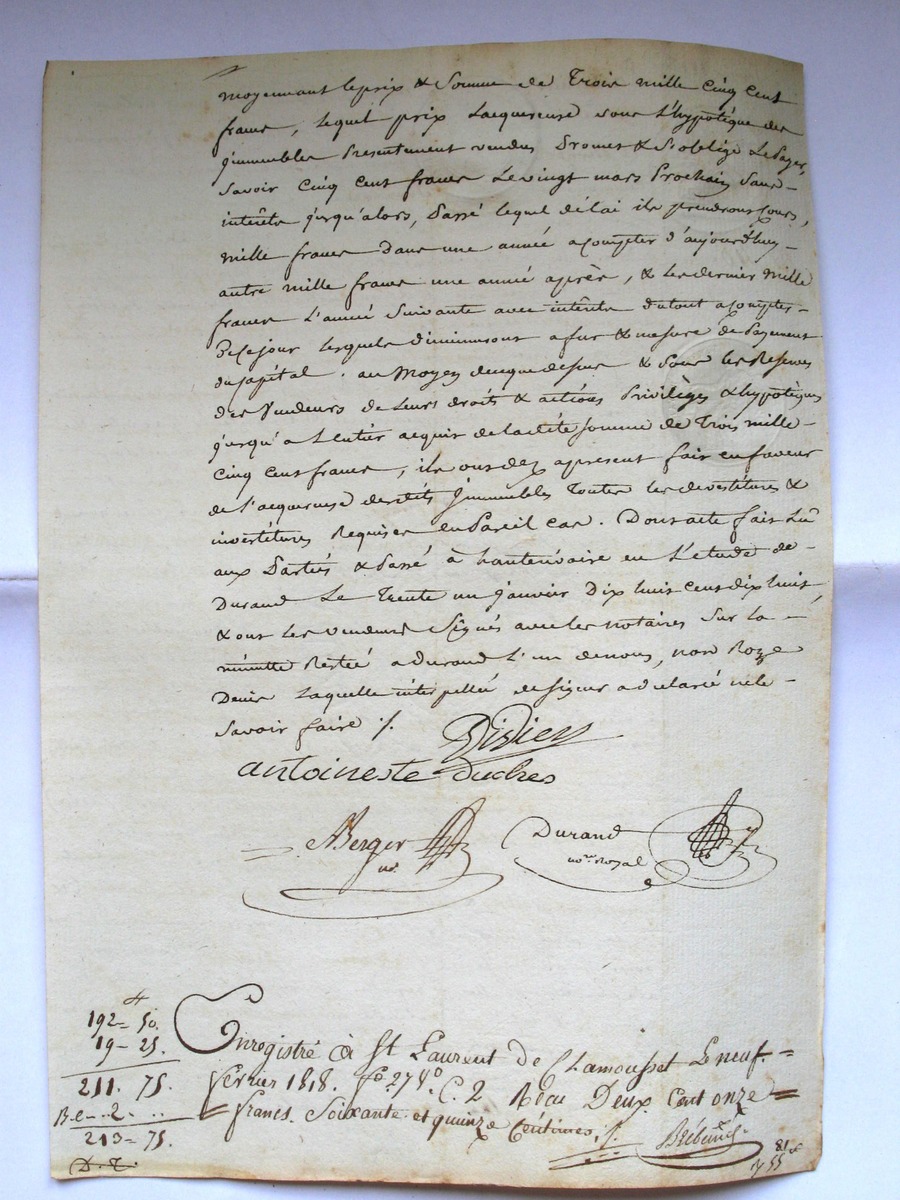 moyennant le prix & Somme de Trois mille cinq cent
francs, lequel prix Lacquereuse sous L'hypotèque des
jmmeubles Présentement vendus Promet & S'oblige Le Payer,
Savoir cinq cent francs Le vingt mars Prochain Sans
intérêts jusqu'alors, Passé lequel délai ils prendront cours,
mille francs dans une année a compter d'aujourd'huy
autre mille francs une année après, & les dernier mille
francs L'année Suivante avec intérêts du tout a compter
De ce jour lesquels Diminueront a fur & mesure de Payement
du capital. au Moyen de ce que dessus & Sous les Reserves
des Vendeurs de Leurs droits & actions Privilèges & hypotèques
jusqu'a L'entier acquis de ladite Somme de Trois mille
Cinq Cent francs, ils ont dez apresent fait en faveur
de l'acquereuse desdits jmmeubles Toutes les devestitures &
investitures Requises en Pareil cas. Dont acte fait Lu
aux Parties & Passé à hauterivoire en L'étude de
Durand Le Trente un janvier Dix huit cent dix huit
& ont les vendeurs Signés avec les notaires Sur la
minutte Restée a Durand L'un de nous, non Roze
Denis Laquelle interpellée de signer a déclaré ne le
Savoir faire /.
Didier
antoineste duches
Berger
no.
Durand
nore. Royal
192 = 50.
19 - 25.
211. 75.
2
213 - 75.
D. T.
Enregistré à St Laurent de Chamousset Le neuf =
février 1818. fo. 27 Vo. C. 2 Reçu Deux Cent onze =
francs Soixante et quinze Centimes /.